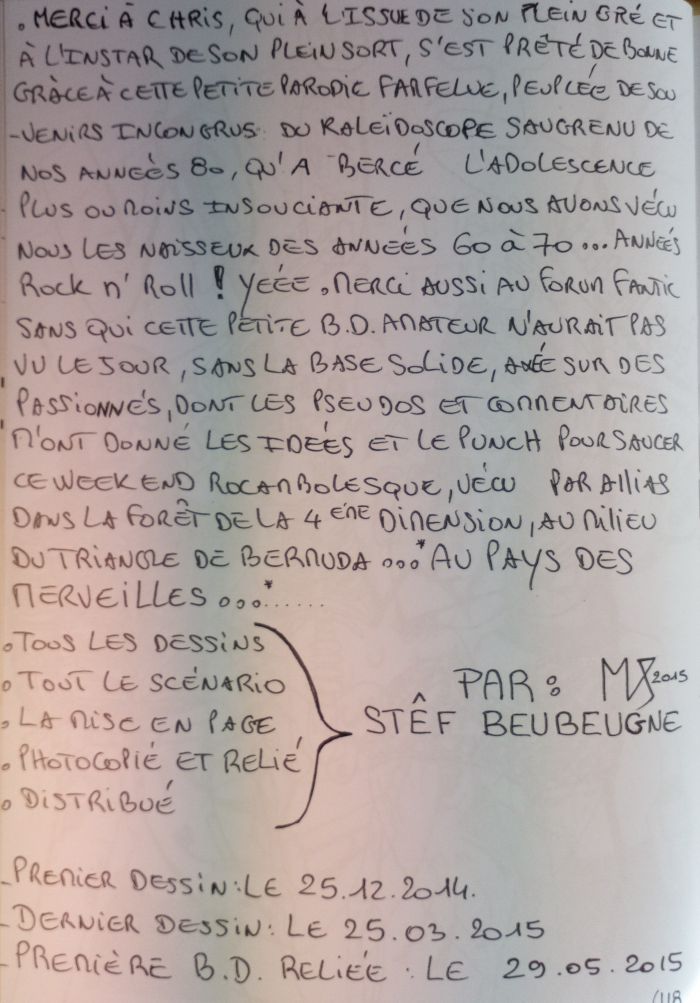 . MERCI À CHRIS, QUI À L'ISSUE DE SON PLEIN GRÉ ET
À L'INSTAR DE SON PLEIN SORT, S'EST PRÊTÉ DE BONNE
GRÂCE À CETTE PETITE PARODIE FARFELUE, PEUPLÉE DE SOU
-VENIRS INCONGRUS DU KALEÏDOSCOPE SAUGRENU DE
NOS ANNEÈS 80, QU'A BERCÉ L'ADOLESCENCE
PLUS OU MOINS INSOUCIANTE, QUE NOUS AVONS VÉCU
NOUS LES NAISSEUR DES ANNEÉS 60 à 70... ANNEÉS
Rock n' Roll ! YEÉE . MERCI AUSSI AU FORUM FANTIC
SANS QUI CETTE PETITE B.D. AMATEUR N'AURAIT PAS
VU LE JOUR, SANS LA BASE SOLIDE, AXÉE SUR DES
PASSIONNÉS, DONT LES PSEUDOS ET COMMENTAIRES
M'ONT DONNÉ LES IDEÉS ET LE PUNCH POUR SAUCER
CE WEEK END ROCAMBOLESQUE, VÉCU PAR AlliAS
DANS LA FORÊT DE LA 4 ÈME DIMENSION, AU MILIEU
DU TRIANGLE DE BERMUDA ...* AU PAYS DES
MERVEILLES ...*......
. TOUS LES DESSINS
. TOUT LE SCÉNARIO
. LA MISE EN PAGE
. PHOTOCOPIÉ ET RELIÉ
. DISTRIBUÉ
PAR : 2015
STÊF BEUBEUGNE
- PREMIER DESSIN : LE 25.12.2014.
- DERNIER DESSIN : LE 25.03.2015
- PREMIÈRE B.D. RELIEÉ : LE 29.05.2015